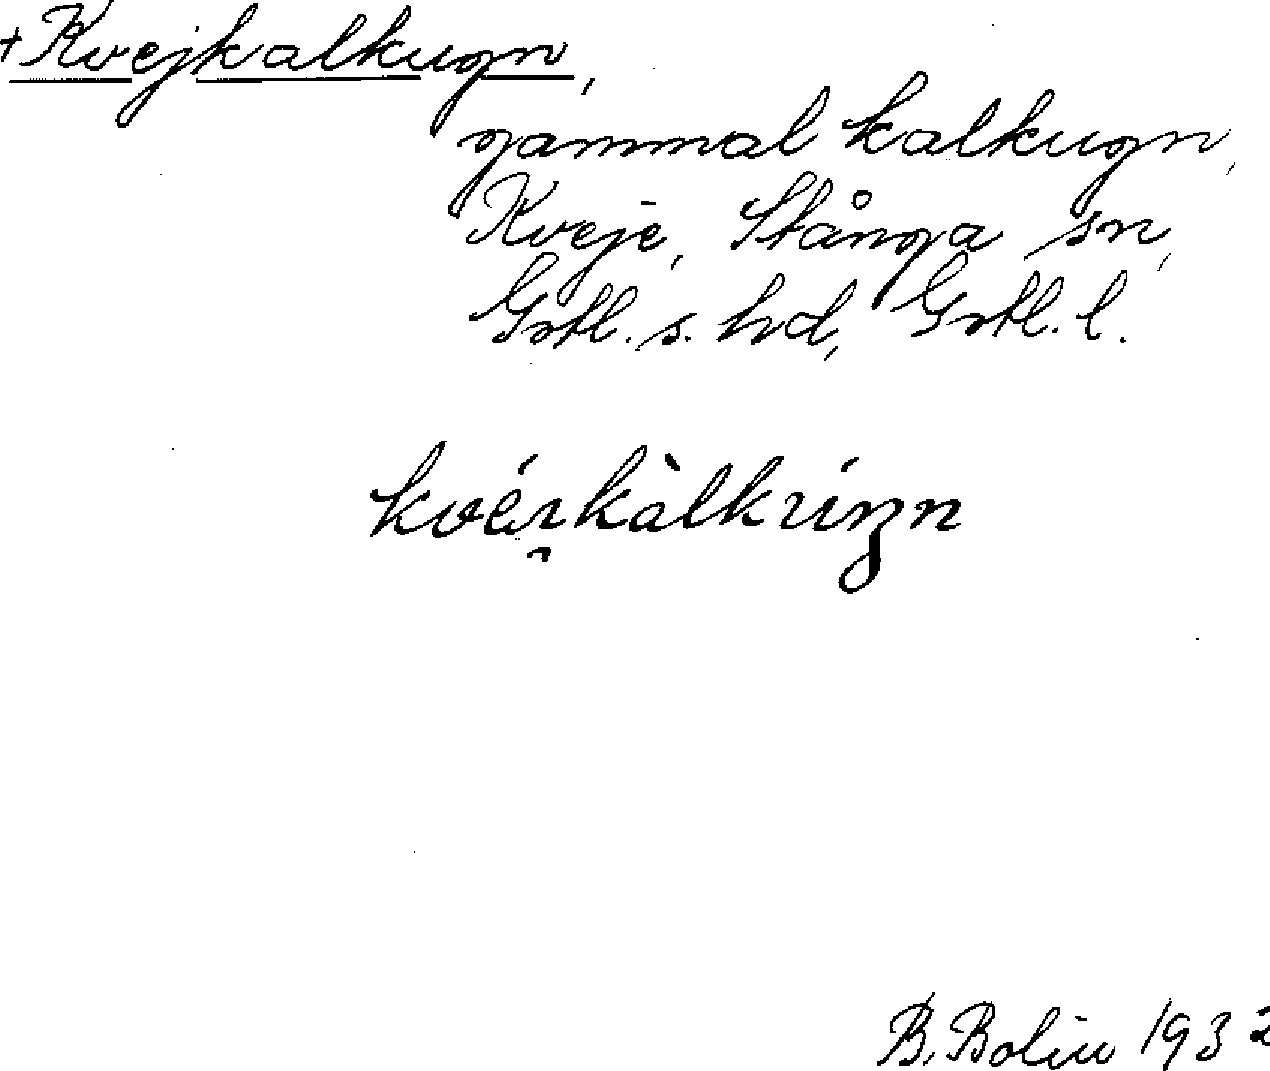 +Kvejkalkugn,
gammal kalkugn,
Kveje, Stånga sn,
Gotl. s. hd, Gotl. l.
B. Bolin 1932